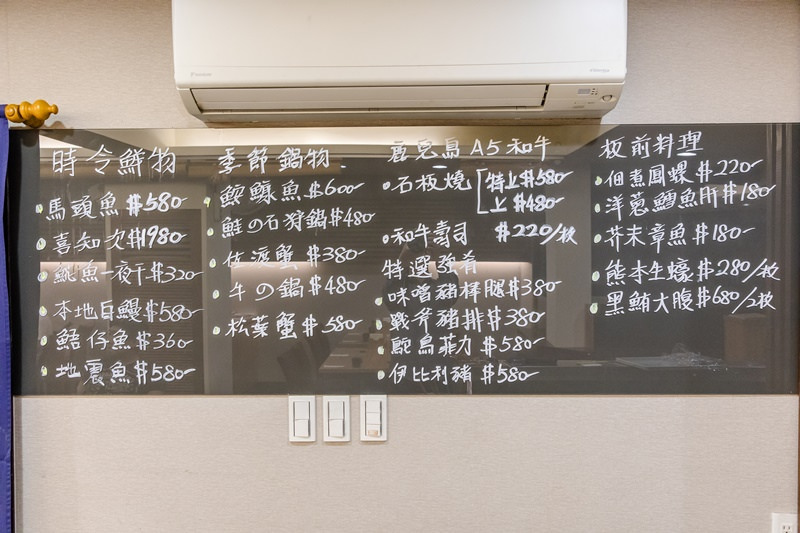 時令鮮物
馬頭魚 $580-
喜知次 $1980-
魚一夜干 $320-
本地白鰻 $580-
仔魚 $360-
地震魚 $580-
季節鍋物
鮟鱇魚 $600-
鮭の石狩鍋 $480-
佐渡蟹 $380-
牛の鍋 $480-
松葉蟹 $580-
鹿兒島 A5 和牛
石板燒 特上 $580-
上 $480-
和牛壽司 $220/枚
特選強肴
味噌豬棒腿 $380-
戰斧豬排 $380-
鴕鳥菲力 $580-
伊比利豬 $580-
板前料理
佃煮鳳螺 $220-
洋蔥鱈魚肝 $180-
芥末章魚 $180-
熊本生蠔 $280/枚
黑鮪大腹 $680/2枚